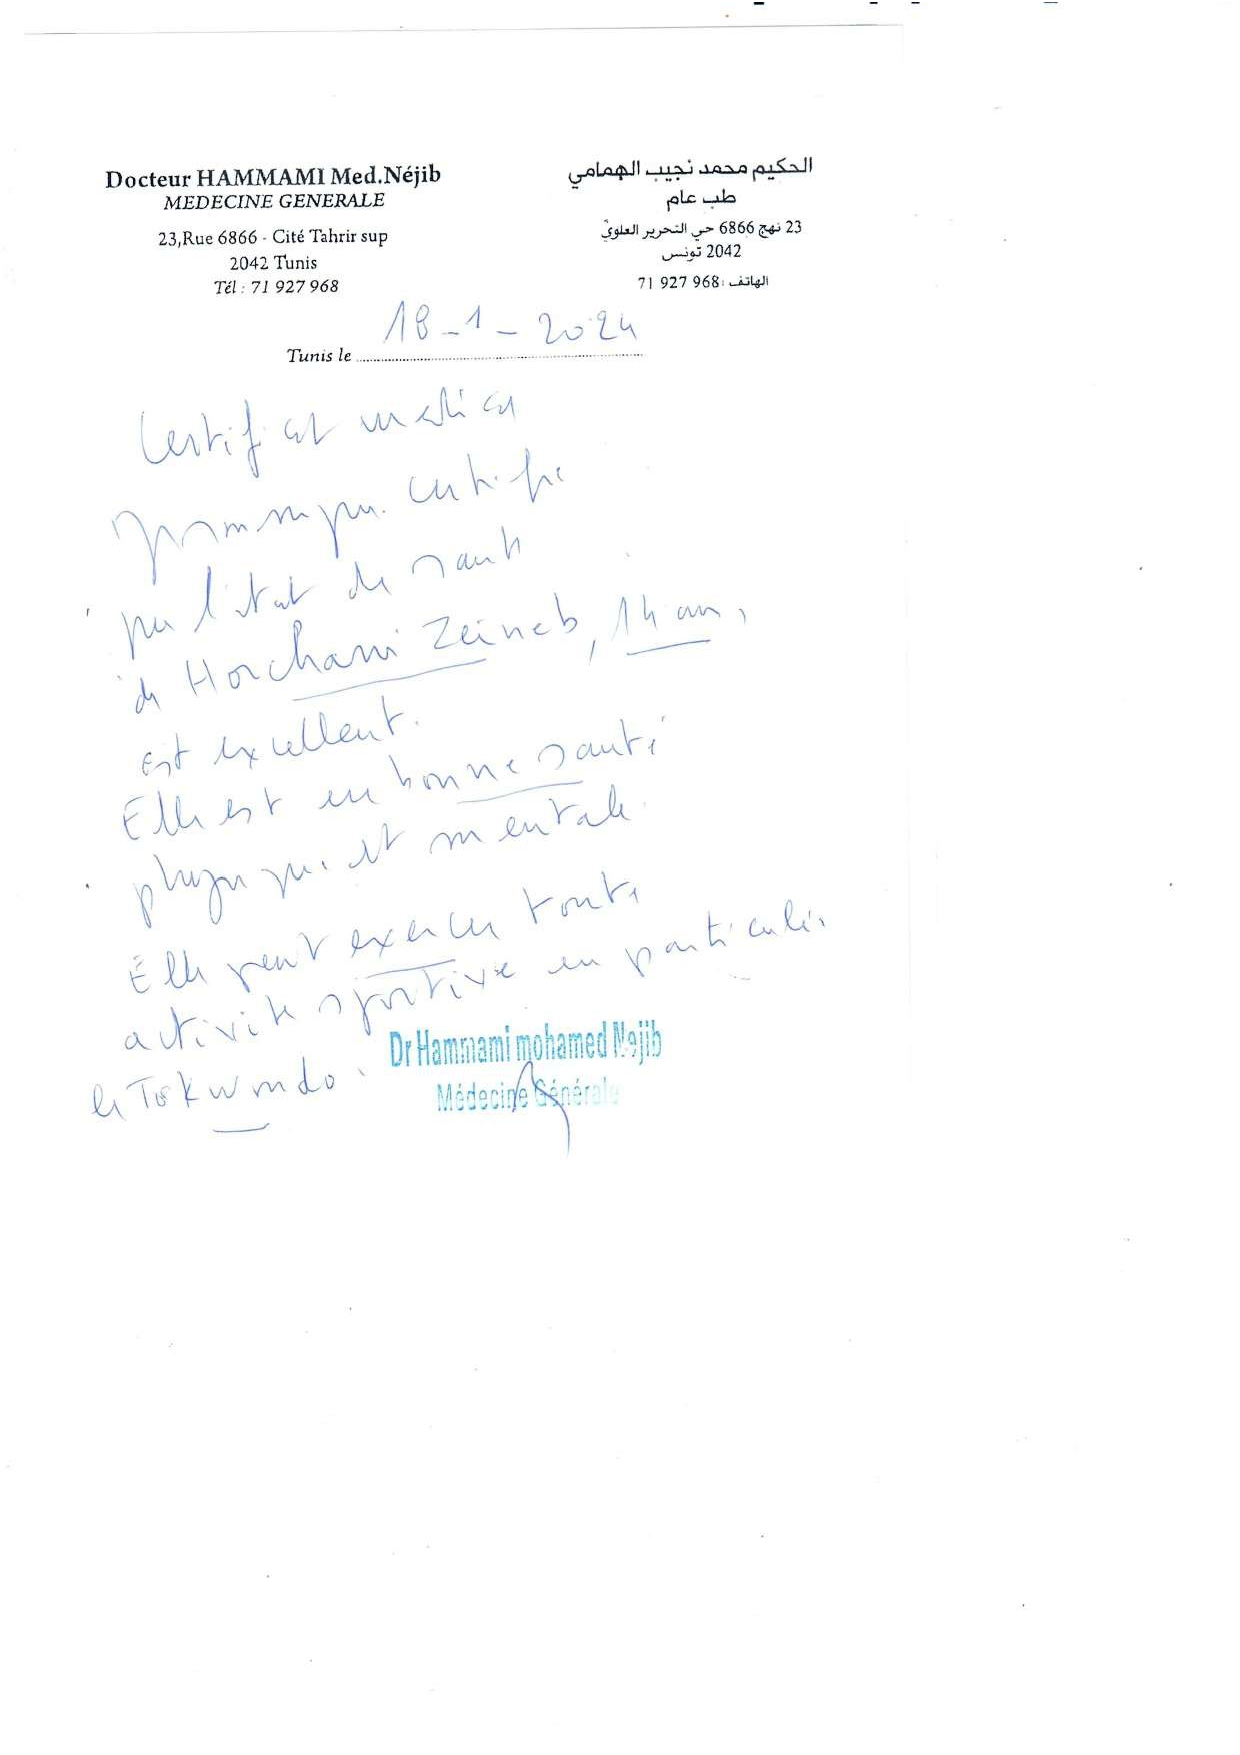 Docteur HAMMAMI Med.Néjib
MEDECINE GENERALE
23,Rue 6866 - Cité Tahrir sup
2042 Tunis
Tél : 71 927 968
الحكيم محمد نجيب الهمامي
طب عام
23 نهج 6866 حي التحرير العلوي
2042 تونس
الهاتف : 71 927 968
Tunis le 18-1-2024
Certificat medical
certifie
que l'état de santé
de Horchani Zeineb, 14 ans,
Est excellent.
Elle est en bonne santé
physique et mentale.
Elle peut exercer toute
activité sportive en particulier
le Tekwondo.
Dr Hammami mohamed Nejib
Médecine Générale